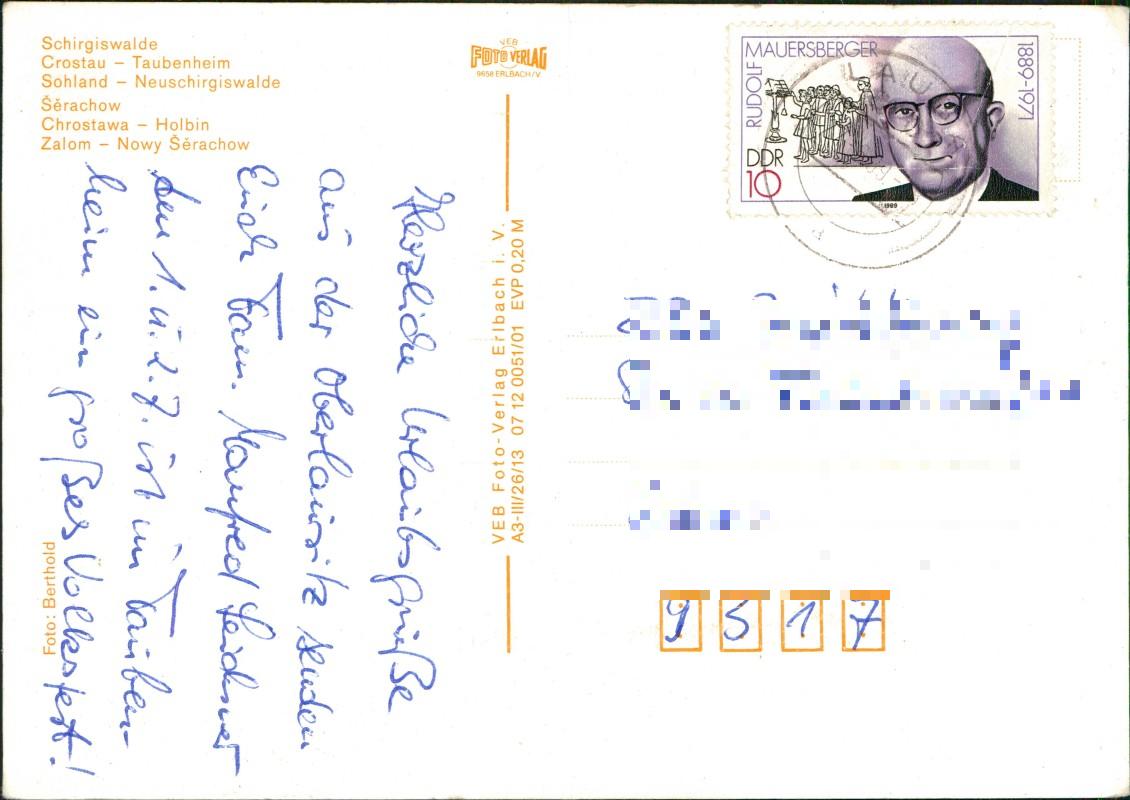 Schirgiswalde
Crostau – Taubenheim
Sohland – Neuschirgiswalde
Šěrachow
Chrostawa – Holbin
Zalom – Nowy Šěrachow
VEB
FOTO VERLAG
9658 ERLBACH/V.
RUDOLF
MAUERSBERGER
1889-1971
DDR
10
1989
LAU
Herzliche Urlaubsgrüße
aus der Oberlausitz senden
Euch Fam. Manfred Leidner
Am 1. u. 2.7. ist in Tauben-
heim ein großes Volksfest!
Foto: Berthold
VEB Foto-Verlag Erlbach i. V.
A3-III/26/13 07 12 0051/01 EVP 0,20 M
9517